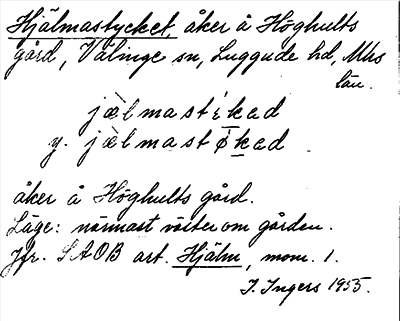 Hjälmastycket, åker å Höghults
gård, Välinge sn, Luggude hd, Mhs
län.
jæ̀lmastíkəd
y. jæ̀lmastø̄kəd.
åker å Höghults gård.
Läge: närmast väster om gården.
Jfr. SAOB art. Hjälm, mom. 1.
I. Ingers 1955.